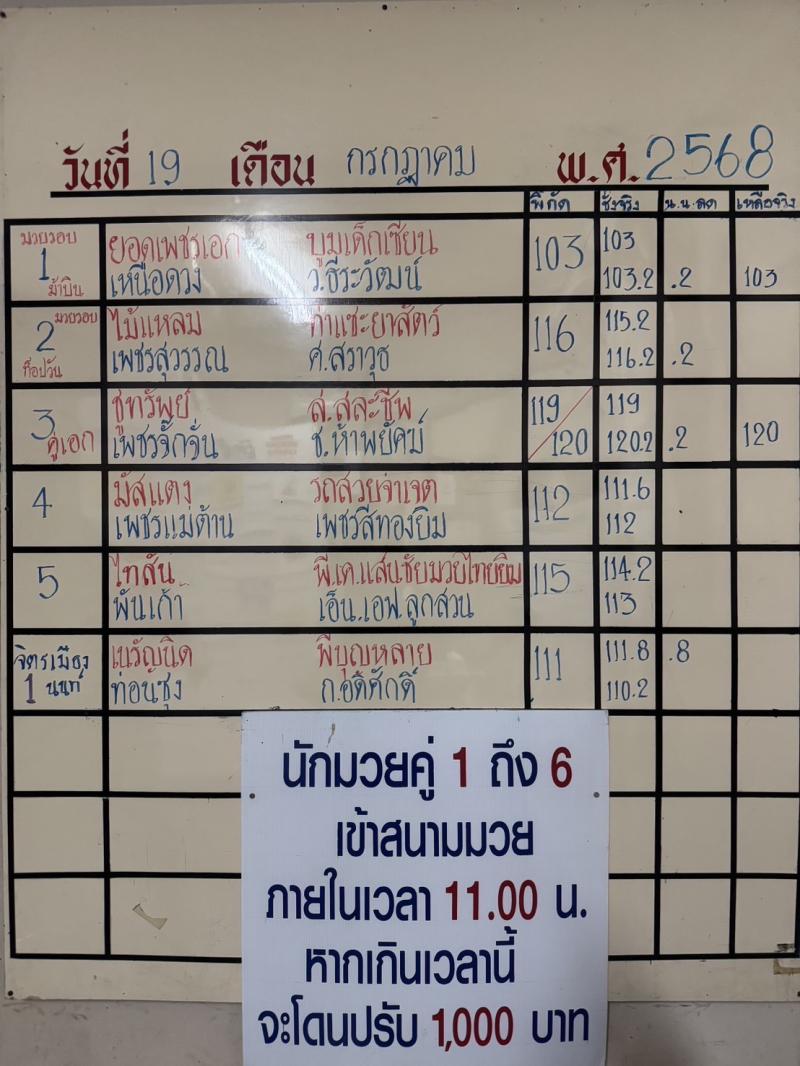 วันที่ 19 เดือน กรกฎาคม พ.ศ. 2568
พิกัด ชั่งจริง น.น.ลด เหลือจริง
มวยรอบ 1 ม้าบิน
ยอดเพชรเอก บูมเด็กเซียน 103 103
เหนือดวง ว.ธีระวัฒน์ 103.2 .2 103
2 มวยรอบ ท็อปวัน
ไม้แหลม ก๋าแซะยาสัตว์ 116 115.2
เพชรสุวรรณ ศ.สราวุธ 116.2 .2
3 คู่เอก
ชูทรัพย์ ส.สละชีพ 119 119
เพชรจั๊กจั่น ช.ห้าพยัคฆ์ 120 120.2 .2 120
4
มัสแตง รถสวยจ่าเจต 112 111.6
เพชรแม่ต้าน เพชรสีทองยิม 112
5
ไทสัน พี.เค.แสนชัยมวยไทยยิม 115 114.2
พันเก้า เอ็น.เอฟ.ลูกสวน 113
จิตรเมือง 1 นนท์
เนวัญนิด พี่บุญหลาย 111 111.8 .8
ท่อนซุง ก.อดิศักดิ์ 110.2
นักมวยคู่ 1 ถึง 6
เข้าสนามมวย
ภายในเวลา 11.00 น.
หากเกินเวลานี้
จะโดนปรับ 1,000 บาท